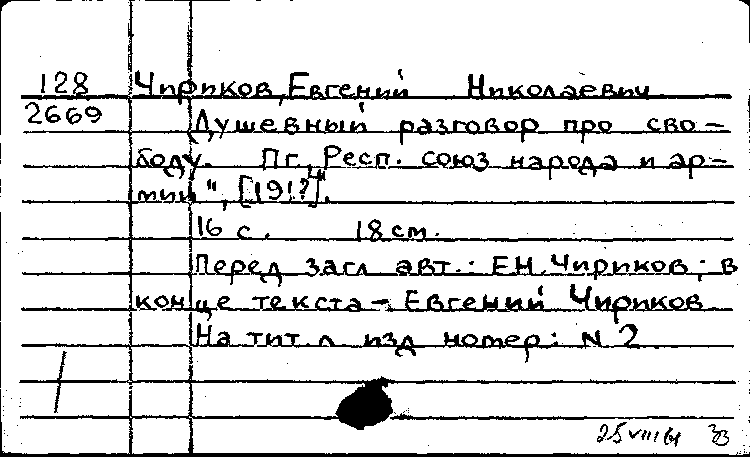 128 Чириков, Евгений Николаевич
2669 Душевный разговор про сво-
боду. Пг., Респ. союз народа и ар-
мии", [1917].
16 с. 18 см.
Перед загл. авт.: Е.Н. Чириков; в
конце текста - Евгений Чириков
На тит. л. изд. номер: N 2
25 VIII 61